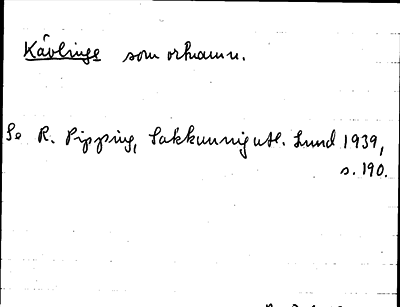 Kävlinge som ortnamn.
Se R. Pipping, Sakkunnigutl. Lund 1939,
s. 190.